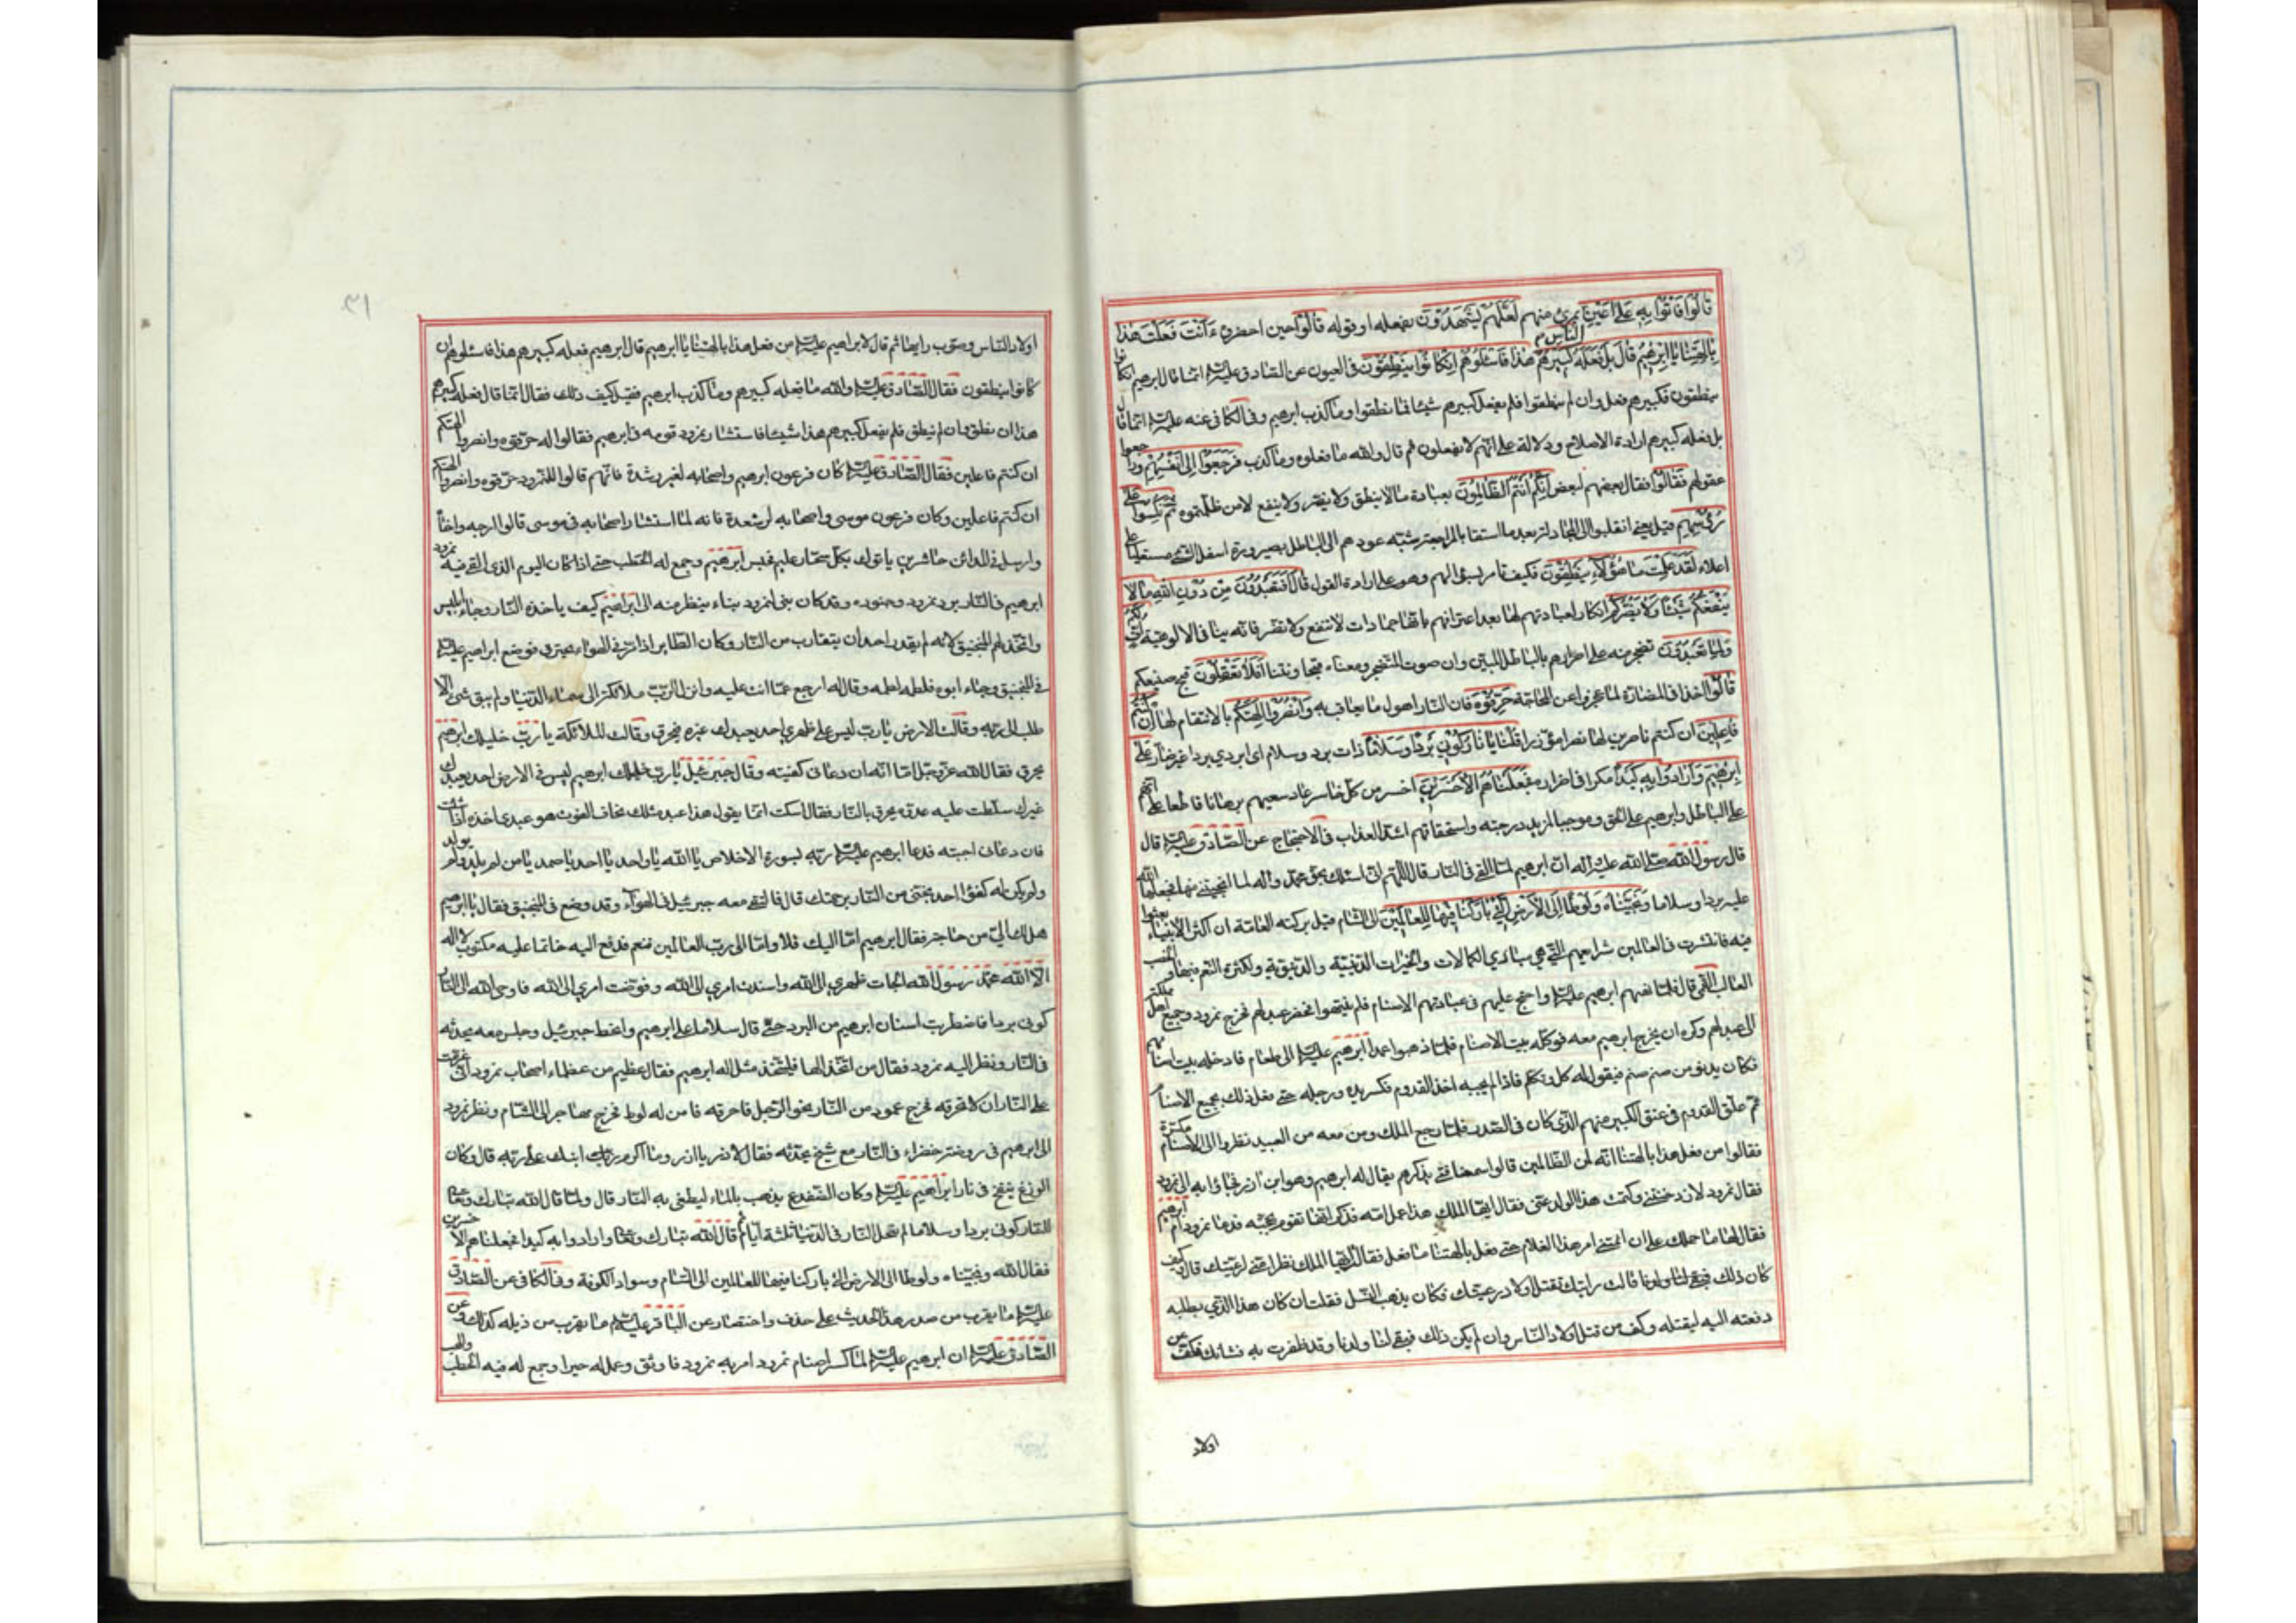 قَالُوا فَأْتُوا بِهِ عَلَى أَعْيُنِ النَّاسِ بمرئ منهم لَعَلَّهُمْ يَشْهَدُونَ بفعله او قوله قَالُوا حين احضروه ءَأَنْتَ فَعَلْتَ هَذَا
بِآلِهَتِنَا يَا إِبْرَهِيمُ قَالَ بَلْ فَعَلَهُ كَبِيرُهُمْ هَذَا فَاسْئَلُوهُمْ إِنْ كَانُوا يَنْطِقُونَ فى العيون عن الصّادق عليه السلم انما قال ابرهيم ان كانوا
ينطقون فكبيرهم فعل وان لم ينطقوا فلم يفعل كبيرهم شيئا فما نطقوا وما كذب ابرهيم وفى الكافى عنه عليه السلم انما قال
بل فعله كبيرهم ارادة الاصلاح ودلالة على انهم لا يفعلون ثم قال والله ما فعلوه وما كذب فَرَجَعُوا إِلَى أَنْفُسِهِمْ وراجعوا
عقولهم فَقَالُوا فقال بعضهم لبعض إِنَّكُمْ أَنْتُمُ الظَّالِمُونَ بعبادة ما لا ينطق ولا يضر ولا ينفع لا من ظلمتموه ثُمَّ نُكِسُوا عَلَى
رُءُوسِهِمْ قيل يعنى انقلبوا الى المجادلة بعد ما استقاموا بالمراجعة شبّه عودهم الى الباطل بصيرورة اسفل الشئ مستعليا على
اعلاه لَقَدْ عَلِمْتَ مَا هَؤُلَاءِ يَنْطِقُونَ فكيف تأمر بسؤالهم وهو على ارادة القول قَالَ أَفَتَعْبُدُونَ مِنْ دُونِ اللَّهِ مَا لَا
يَنْفَعُكُمْ شَيْئًا وَلَا يَضُرُّكُمْ انكار لعبادتهم لها بعد اعترافهم بانها جمادات لا تنفع ولا تضر فانه ينافى الالوهية أُفٍّ لَكُمْ
وَلِمَا تَعْبُدُونَ تضجر منه على اصرارهم بالباطل المبين واف صوت المتضجر ومعناه قبحا ونتنا أَفَلَا تَعْقِلُونَ قبح صنيعكم
قَالُوا اخذا فى المضارّة لما عجزوا عن المحاجّة حَرِّقُوهُ فان النار اهول ما يعاقب به وَانْصُرُوا آلِهَتَكُمْ بالانتقام لها إِنْ كُنْتُمْ
فَاعِلِينَ ان كنتم ناصرين لها نصرا مؤزرا قُلْنَا يَا نَارُ كُونِي بَرْدًا وَسَلَامًا ذات برد وسلام اى ابردى بردا غير ضار عَلَى
إِبْرَهِيمَ وَأَرَادُوا بِهِ كَيْدًا مكرا فى اضراره فَجَعَلْنَاهُمُ الْأَخْسَرِينَ اخسر من كل خاسر عاد سعيهم برهانا قاطعا على انهم
على الباطل وابرهيم على الحق وموجبا لمزيد درجته واستحقاقهم اشد العذاب فى الاحتجاج عن الصّادق عليه السلم قال
قال رسول الله صلى الله عليه وآله ان ابرهيم لما القى فى النار قال اللهم انى اسئلك بحق محمد وآله لما انجيتنى منها فجعلها الله
عليه بردا وسلاما وَنَجَّيْنَاهُ وَلُوطًا إِلَى الْأَرْضِ الَّتِي بَارَكْنَا فِيهَا لِلْعَالَمِينَ الى الشام قيل بركته العامة ان اكثر الانبياء بعثوا
فيه فانتشرت فى العالمين شرايعهم التى هى مبادى الكمالات والخيرات الدينية والدنيوية ولكثرة النعم فيها والخصب
الغالب القمى قال فلما نهيهم ابرهيم عليه السلم واحتج عليهم فى عبادتهم الاصنام فلم ينتهوا فحضر عيد لهم فخرج نمرود وجميع اهل مملكته
الى عيد لهم وكره ان يخرج ابرهيم معه فوكله ببيت الاصنام فلما ذهبوا عمد ابرهيم عليه السلم الى طعام فادخله بيت اصنامهم
فكان يدنو من صنم صنم فيقول له كل وتكلم فاذا لم يجبه اخذ القدوم فكسر يده ورجله حتى فعل ذلك بجميع الاصنام
ثم علّق القدوم فى عنق الكبير منهم الذى كان فى الصدر فلما رجع الملك ومن معه من العيد نظروا الى الاصنام مكسّرة
فقالوا من فعل هذا بالهتنا انه لمن الظالمين قالوا سمعنا فتى يذكرهم يقال له ابرهيم وهو ابن ازر فجاؤا به الى نمرود
فقال نمرود لازر خنتنى وكتمت هذا الولد عنى فقال ايها الملك هذا عمل امّه وذكرت انها تقوم بحجته فدعا نمرود ام ابرهيم
فقال لها ما حملك على ان كتمتنى امر هذا الغلام حتى فعل بالهتنا ما فعل فقالت ايها الملك نظرا منى لرعيتك قال وكيف
كان ذلك قالت رايتك تقتل اولاد رعيتك فكان يذهب النسل فقلت ان كان هذا الذى يطلبه
دفعته اليه ليقتله وكف عن قتل اولاد الناس وان لم يكن ذلك فبقى لنا ولدنا وقد ظفرت به فشانك فكف عن
اولاد
٣١
اولاد الناس وصوّب رايها ثم قال لابراهيم عليه السلم من فعل هذا بالهتنا يا ابرهيم قال ابرهيم فعله كبيرهم هذا فاسئلوهم ان
كانوا ينطقون فقال الصّادق عليه السلم والله ما فعله كبيرهم وما كذب ابرهيم فقيل كيف ذلك فقال انما قال فعله كبيرهم
هذا ان نطق وان لم ينطق فلم يفعل كبيرهم هذا شيئا فاستشار نمرود قومه فى ابرهيم فقالوا له حرّقوه وانصروا الهتكم
ان كنتم فاعلين فقال الصّادق عليه السلم كان فرعون ابرهيم واصحابه لغير رشدة فانهم قالوا للنمرود حرّقوه وانصروا الهتكم
ان كنتم فاعلين وكان فرعون موسى واصحابه لرشدة فانه لما استشار اصحابه فى موسى قالوا ارجه واخاه
وارسل فى المدائن حاشرين ياتوك بكل سحّار عليم فحبس ابرهيم وجمع له الحطب حتى اذا كان اليوم الذى القى فيه نمرود
ابرهيم فى النار برز نمرود وجنوده وقد كان بنى لنمرود بناء ينظر منه الى ابراهيم كيف ياخذه النار وجاء ابليس
واتخذ لهم المنجنيق لانه لم يقدر احد ان يتقارب من النار وكان الطاير اذا مرّ فى الهواء يحترق فوضع ابراهيم عليه السلم
فى المنجنيق وجاء ابوه فلطمه لطمة وقال له ارجع عمّا انت عليه وانزل الرّب ملائكته الى سماء الدنيا ولم يبق شئ الا
طلب الى ربه وقالت الارض يا رب ليس على ظهرى احد يعبدك غيره فيحرق وقالت الملائكة يا رب خليلك ابرهيم
يحرق فقال الله عز وجل اما انه ان دعانى كفيته وقال جبرئيل يا رب خليلك ابرهيم ليس فى الارض احد يعبدك
غيرك سلّطت عليه عدوه يحرقه بالنار فقال اسكت انما يقول هذا عبد مثلك يخاف الفوت هو عبدى اخذه اذا شئت
فان دعانى اجبته فدعا ابرهيم عليه السلم ربه بسورة الاخلاص يا الله يا واحد يا احد يا صمد يا من لم يلد ولم يولد
ولم يكن له كفوا احد نجّنى من النار برحمتك قال فالتقى معه جبرئيل فى الهوآء وقد وضع فى المنجنيق فقال يا ابرهيم
هل لك الىّ من حاجة فقال ابرهيم امّا اليك فلا وامّا الى رب العالمين فنعم فدفع اليه خاتما عليه مكتوب لا اله
الا الله محمد رسول الله الجات ظهرى الى الله واسندت امرى الى الله وفوّضت امرى الى الله فاوحى الله الى النار
كونى بردا فاضطربت اسنان ابرهيم من البرد حتى قال سلاما على ابرهيم وانحط جبرئيل وجلس معه يحدثه
فى النار ونظر اليه نمرود فقال من اتخذ الها فليتخذ مثل اله ابرهيم فقال عظيم من عظماء اصحاب نمرود انى عزمت
على النار ان لا تحرقه فخرج عمود من النار نحو الرجل فاحرقه فامن له لوط فخرج مهاجرا الى الشام ونظر نمرود
الى ابرهيم فى روضة خضراء فى النار مع شيخ يحدثه فقال لازر يا ازر وما اكرم ابنك على ربه قال وكان
الوزغ ينفخ فى نار ابراهيم عليه السلم وكان الضفدع يذهب بالماء ليطفئ به النار قال ولما قال الله تبارك وتعالى
للنار كونى بردا وسلاما لم تعمل النار فى الدنيا ثلثة ايام ثم قال الله تبارك وتعالى وارادوا به كيدا فجعلناهم الاخسرين
فقال الله ونجيناه ولوطا الى الارض التى باركنا فيها للعالمين الى الشام وسواد الكوفة وفى الكافى عن الصّادق
عليه السلم ما يقرب من صدر هذا الحديث على حذف واختصار عن الباقر عليه السلم ما يقرب من ذيله كذلك وعن
الصّادق عليه السلم ان ابرهيم عليه السلم لما كسر اصنام نمرود امر به نمرود فاوثق وعمل له حيرا وجمع له فيه الحطب والهب